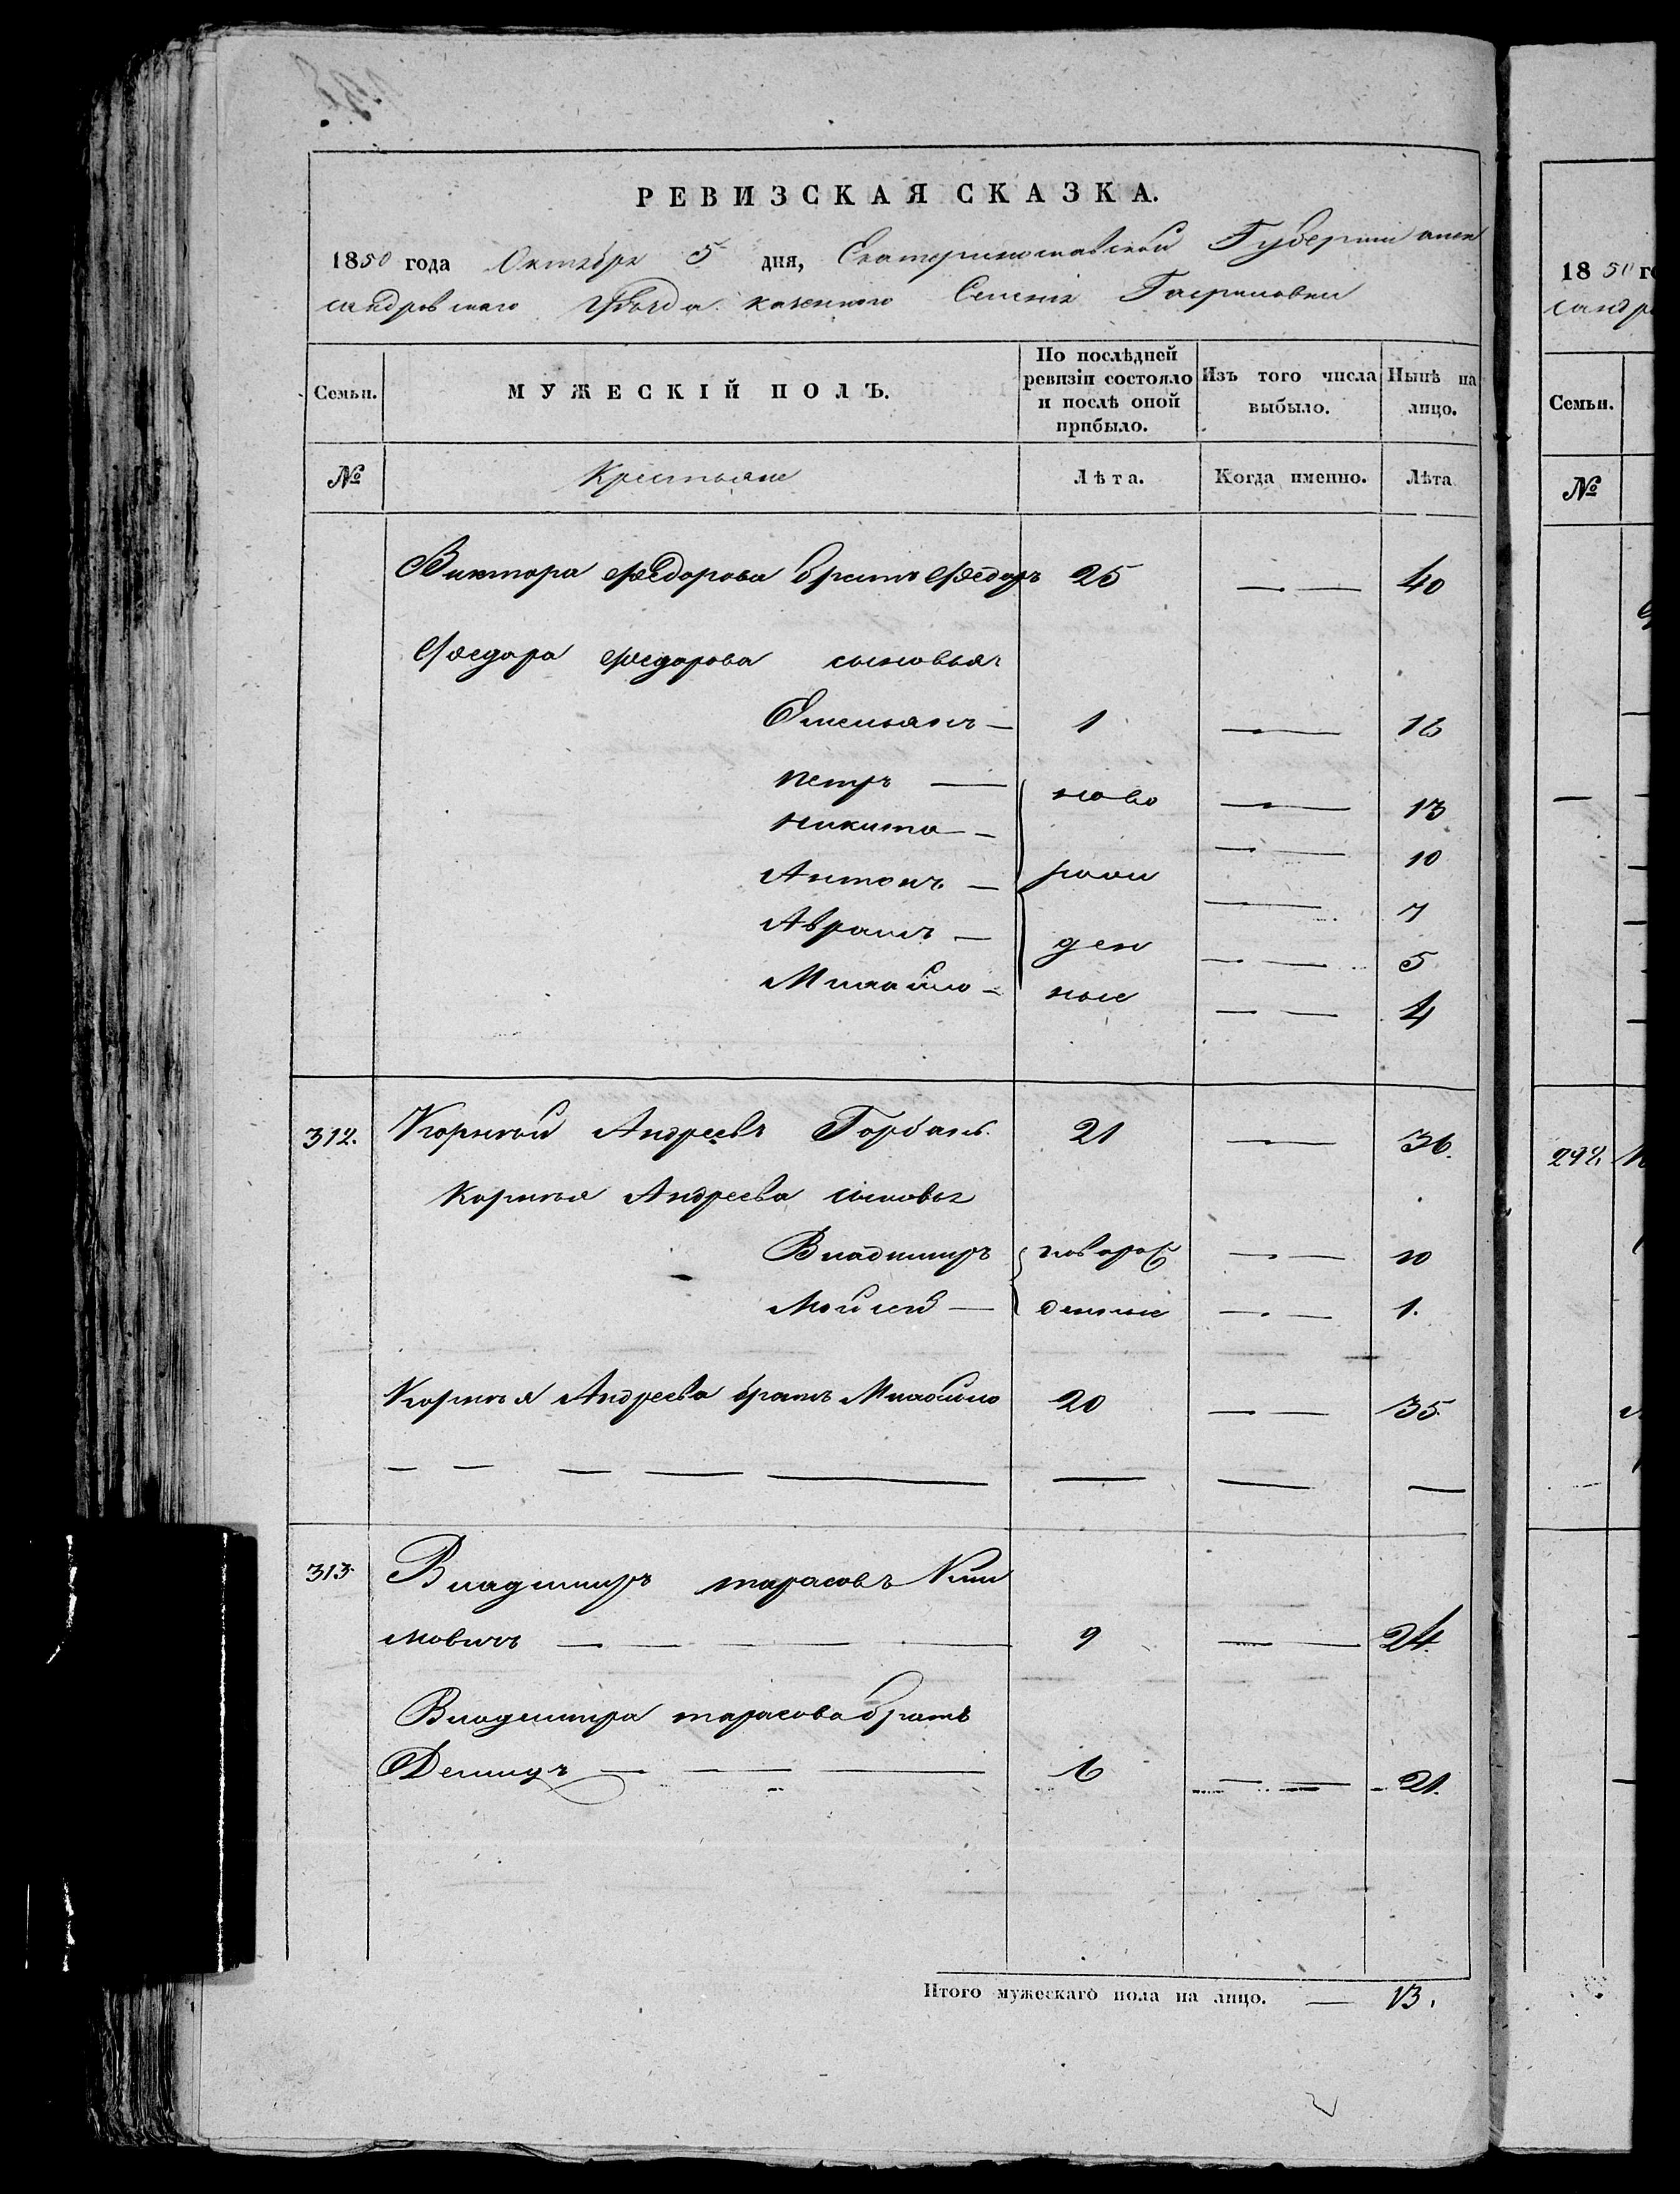 РЕВИЗСКАЯ СКАЗКА.
1850 года Октября 5 дня, Екатеринославской Губернии алек
сандровского Уѣзда казенного Селенія Гавриловки
Семьи. МУЖЕСКІЙ ПОЛЪ. По послѣдней ревизіи состояло и послѣ оной прибыло. Изъ того числа выбыло. Нынѣ на лицо.
№ Крестьяне Лѣта. Когда именно. Лѣта
Виктора Федорова братъ Федоръ 25 — — 40
Федора Федорова сыновья
Емельянъ — 1 — — 16
Петръ — ново — — 13
Никита — — — 10
Антонъ — рож — — 7
Аврамъ — ден — — 5
Михайло — ные — — 4
312. Корней Андреевъ Горбань 21 — — 36.
Корнея Андреева сыновья
Владимиръ новорож — — 10
Мойсей — денные — — 1.
Корнея Андреева братъ Михайло 20 — — 35
313 Владимиръ тарасовъ Кли
мовичъ — — — — 9 — — 24
Владимира тарасова братъ
Демидъ — — — 6 — — 21.
Итого мужескаго пола на лицо. — 13.
1850 го
сандро
Семьи.
№
292.